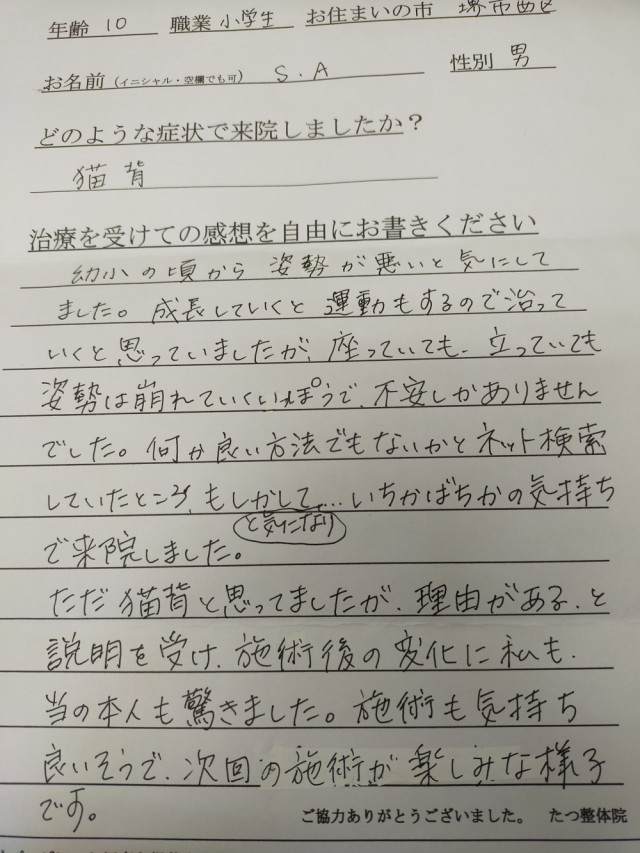 年齢 10 職業 小学生 お住まいの市 堺市西区
お名前(イニシャル・空欄でも可) S.A 性別 男
どのような症状で来院しましたか？
猫背
治療を受けての感想を自由にお書きください
幼小の頃から姿勢が悪いと気にして
ました。成長していくと運動もするので治って
いくと思っていましたが、座っていても、立っていても
姿勢は崩れていくいっぽうで、不安しかありません
でした。何か良い方法でもないかとネット検索
していたところ、もしかして…、いちかばちかの気持ち
と気になり
で来院しました。
ただ猫背と思ってましたが、理由がある、と
説明を受け、施術後の変化に私も、
当の本人も驚きました。施術も気持ち
良いそうで、次回の施術が楽しみな様子
です。
ご協力ありがとうございました。 たつ整体院